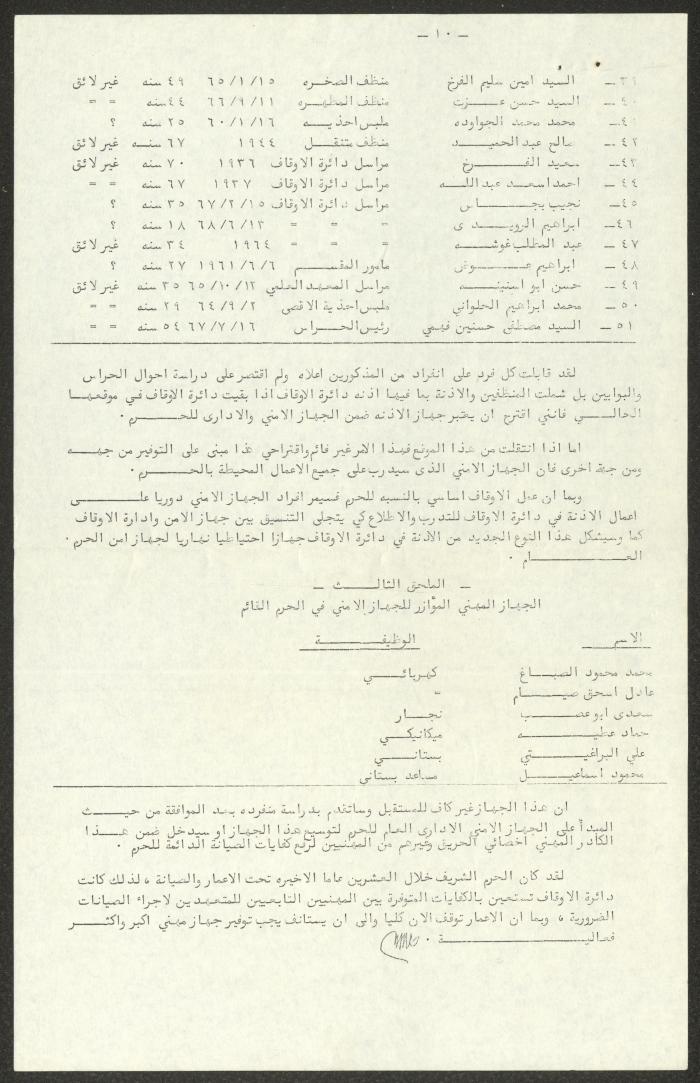 - ١٠ -
٣٩ـ السيد امين سليم الفرخ منظف الصخره ٦٥/١/١٥ ٤٩ سنه غير لائق
٤٠ـ السيد حسن عـــزت منظف المطهره ٦٦/٩/١١ ٤٤ سنه = =
محمد محمد الجواوده ملبس احذيـــه ٦٠/١/١٦ ٢٥ سنه ؟
٤٢ـ صالح عبد الحميـــد منظف متنقـــل ١٩٤٤ ٦٧ سنـه غير لائق
٤٣ـ سعيد الفـــرخ مراسل دائرة الاوقاف ١٩٣٦ ٧٠ سنه غير لائق
٤٤ـ احمد اسعد عبد اللـــه مراسل دائرة الاوقاف ١٩٣٧ ٦٧ سنه = =
٤٥ـ نجيب بجـــاس مراسل دائرة الاوقاف ٦٧/٢/١٥ ٣٥ سنه ؟
٤٦ـ ابراهيم الرويـــدى = = = ٦٨/٦/١٣ ١٨ سنه ؟
٤٧ـ عبد المطلب غوشـــه = = = ١٩٦٤ ٣٤ سنه غير لائق
٤٨ـ ابراهيم عـــوض مامور المقســـم ١٩٦١/٦/٦ ٢٧ سنه ؟
٤٩ـ حسن ابو اسنينـــه مراسل المعهد العلمي ٦٥/١٠/١٢ ٣٥ سنه غير لائق
٥٠ـ محمد ابراهيم الحلواني ملبس احذية الاقصى ٦٤/٩/٢ ٢٩ سنه = =
٥١ـ السيد مصطفى حسنين فهمي رئيس الحـــراس ٦٧/٧/١٦ ٥٤ سنه = =
لقد قابلت كل فرد على انفراد من المذكورين اعلاه ولم اقتصر على دراسة احوال الحراس
والبوابين بل شملت المنظفين والاذنة بما فيها اذنه دائرة الاوقاف اذا بقيت دائرة الاوقاف في موقعهـا
الحالـــي فانني اقترح ان يعتبر جهاز الاذنه ضمن الجهاز الامني والادارى للحـــرم .
اما اذا انتقلت من هذا الموقع فهذا الامر غير قائم واقتراحي هذا مبنى على التوفير من جهـــه
ومن جهة اخرى فان الجهاز الامني الذى سيدرب على جميع الاعمال المحيطة بالحـــرم .
وبما ان عمل الاوقاف اساسي بالنسبه للحرم فسيمر افراد الجهاز الامني دوريا علـــى
اعمال الاذنة في دائرة الاوقاف للتدرب والاطلاع كي يتجلى التنسيق بين جهاز الامن وادارة الاوقاف
كما وسيشكل هذا النوع الجديد من الاذنة في دائرة الاوقاف جهازا احتياطيا نهاريا لجهاز امن الحرم .
العـــام .
- الملحق الثالـــث -
الجهاز المهني المؤازر للجهاز الامني في الحرم القائم
الاســم الوظيفـــة
محمد محمود الصبـــاغ كهربائـــي
عادل اسحق صيـــام =
سعدى ابو عصـــب نجـــار
حماد عطيـــه ميكانيكـــي
علي البراغيـــتي بستانـــي
محمود اسماعيـــل مساعد بستاني
ان هذا الجهاز غير كاف للمستقبل وساتقدم بدراسة منفرده بعد الموافقة من حيـــث
المبدأ على الجهاز الامني الادارى العام للحرم لتوسيع هذا الجهاز او سيدخل ضمن هـــذا
الكادر المهني اخصائي الحريق وغيرهم من المهنيين لرفع كفايات الصيانة الدائمة للحرم .
لقد كان الحرم الشريف خلال العشرين عاما الاخيره تحت الاعمار والصيانة ، لذلك كانت
دائرة الاوقاف تستعين بالكفايات المتوفرة بين المهنيين التابعيين للمتعهدين لاجراء الصيانات
الضرورية ، وبما ان الاعمار توقف الان كليا والى ان يستانف يجب توفير جهاز مهني اكبر واكثـــر
فعاليـــة .